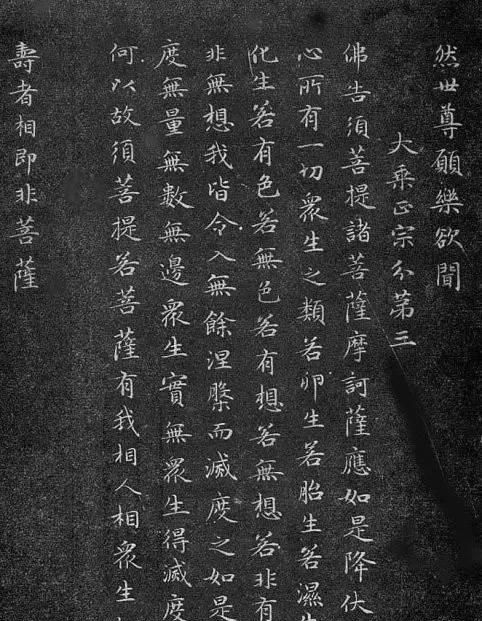 然世尊願樂欲聞
大乘正宗分第三
佛告須菩提諸菩薩摩訶薩應如是降伏
心所有一切眾生之類若卵生若胎生若濕生
化生若有色若無色若有想若無想若非有
非無想我皆令入無餘涅槃而滅度之如是
度無量無數無邊眾生實無眾生得滅度
何以故須菩提若菩薩有我相人相眾生
壽者相即非菩薩